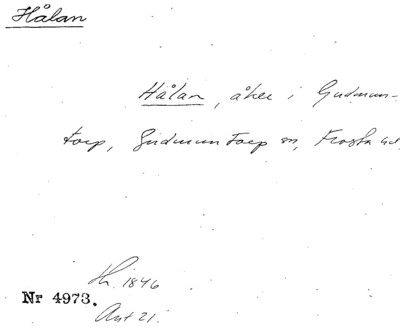 Hålan
Hålan, åker i Gudmun-
torp, Gudmuntorp sn, Frosta hd.
Lh. 1846
Nr 4973.
Ant 21.